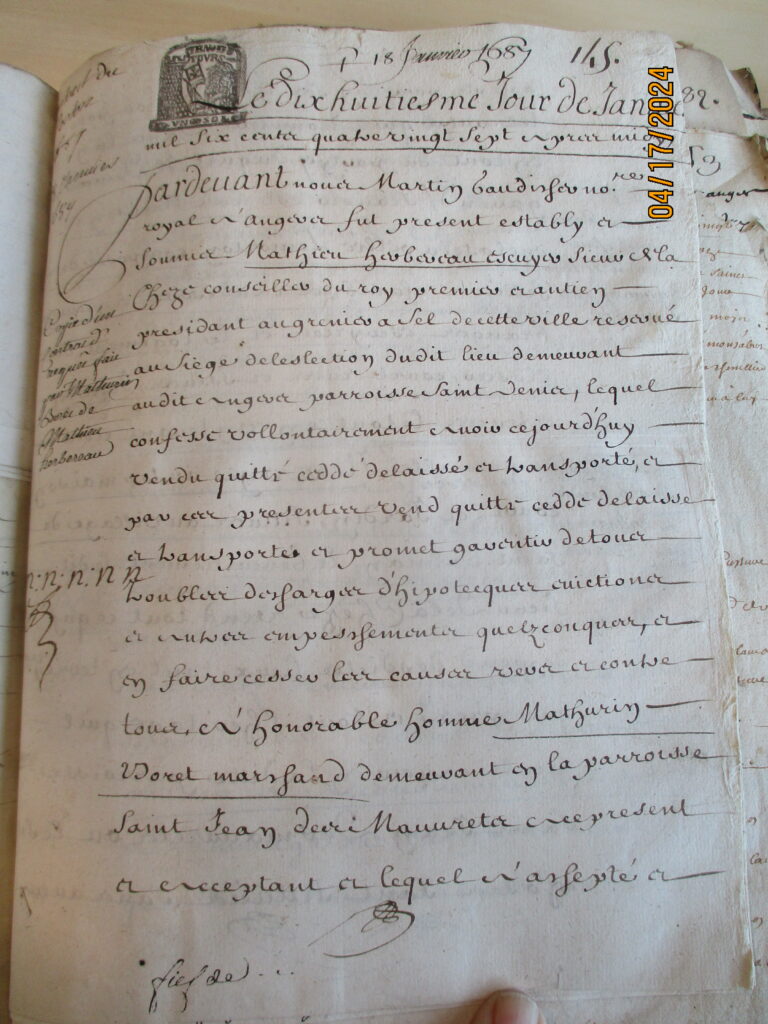 18 Janvier 1687
145.
Le Dix huitiesme Jour de Janvier
mil six cents quatrevingt sept apres midy
Pardevant nous Martin Gaudicher no.re
royal a Angers fut present estably et
soumis Mathieu Herbereau escuyer sieur de la
Cheze conseiller du roy premier et antien
presidant au grenier a sel de cette ville reservé
au siege de leslection dudit lieu demeurant
audit Angers parroisse Saint Denis, lequel
confesse vollontairement avoir cejourd'huy
vendu quitté ceddé delaissé et transporté, et
par ces presentes vend quitte cedde delaisse
et transporte et promet garentir de tous
troubles descharger d'hipotecques evictions
et autres empeschements quelzconques, et
en faire cesser les causes vers et contre
tous, a honorable homme Mathurin
Boret marchand demeurant en la parroisse
Saint Jean des Mauvrets a ce present
et acceptant et lequel a achepté et
fief de ...
Copie d'un
contrat d'
acquêt fait
par Mathurin
Boret de
Mathieu
Herbereau
n: n: n: n n
04/17/2024